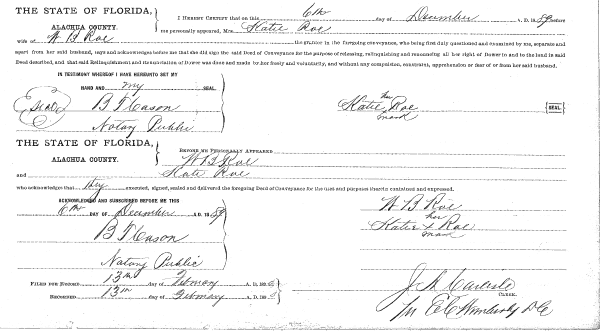 THE STATE OF FLORIDA,
ALACHUA COUNTY.
I HEREBY CERTIFY that on this 6th day of December A. D. 1889 before
me personally appeared, Mrs. Katie Roe
wife of W B Roe the grantor in the foregoing conveyance, who being first duly questioned and examined by me, separate and
apart from her said husband, says and acknowledges before me that she did sign the said Deed of Conveyance for the purpose of releasing, relinquishing and renouncing all her right of Dower to and to the land in said
Deed described, and that said Relinquishment and Renunciation of Dower was done and made by her freely and voluntarily, and without any compulsion, constraint, apprehension or fear of or from her said husband.
IN TESTIMONY WHEREOF I HAVE HEREUNTO SET MY
HAND AND my SEAL.
Seal
B F Cason
Notary Public
her
Katie Roe SEAL
mark
THE STATE OF FLORIDA,
ALACHUA COUNTY.
BEFORE ME PERSONALLY APPEARED
W B Roe
and Kate Roe
who acknowledge that they executed, signed, sealed and delivered the foregoing Deed of Conveyance for the uses and purposes therein contained and expressed.
ACKNOWLEDGED AND SUBSCRIBED BEFORE ME THIS
6th DAY OF December A. D. 1889
B F Cason
Notary Public
W B Roe
her
Katie x Roe
mark
FILED FOR RECORD 13th day of February A. D. 189
RECORDED 13th day of February A. D. 189
CLERK.